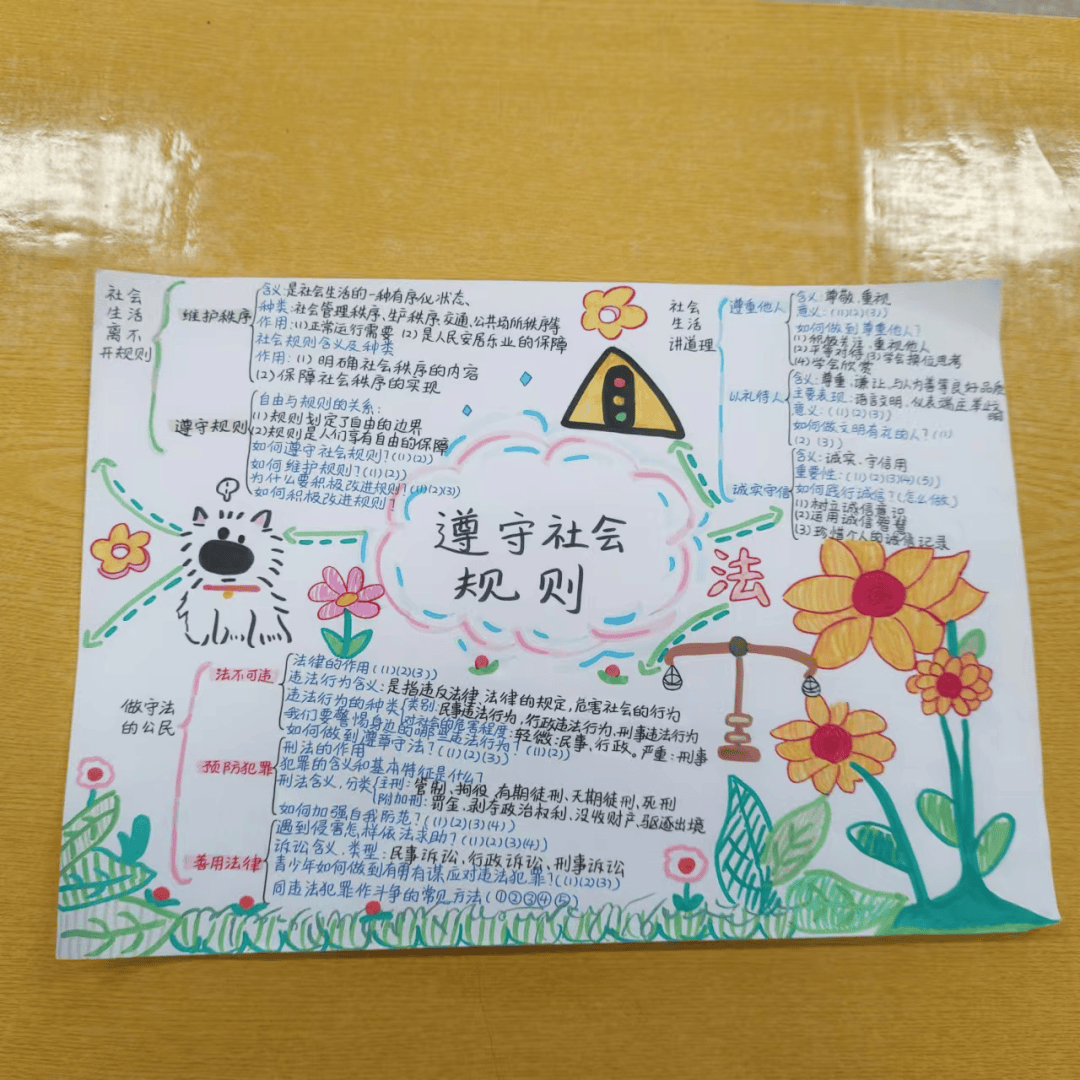 遵守社会
规则
法
社会
生活
离不
开规则
维护秩序
含义:是社会生活的一种有序化状态、
种类:社会管理秩序、生产秩序、交通、公共场所秩序等
作用:(1)正常运行需要 (2)是人民安居乐业的保障
社会规则含义及种类
作用:(1)明确社会秩序的内容
(2)保障社会秩序的实现
遵守规则
自由与规则的关系:
(1)规则划定了自由的边界
(2)规则是人们享有自由的保障
如何遵守社会规则?(1)(2))
如何维护规则?(1)(2))
为什么要积极改进规则?(1)(2)(3))
如何积极改进规则?
社会
生活
讲道理
尊重他人
含义:尊敬、重视
意义:(1)(2)(3))
如何做到尊重他人?
(1)积极关注、重视他人
(2)平等对待 (3)学会换位思考
(4)学会欣赏
以礼待人
含义:尊重、谦让、与人为善等良好品质
主要表现:语言文明、仪表端庄、举止
意义:(1)(2)(3))
如何做文明有礼的人?(1)
(2)(3))
诚实守信
含义:诚实、守信用
重要性:(1)(2)(3)(4)(5))
如何践行诚信?(怎么做)
(1)树立诚信意识
(2)运用诚信智慧
(3)珍惜个人的诚信记录
做守法
的公民
法不可违
法律的作用(1)(2)(3))
违法行为含义:是指违反法律、法律的规定,危害社会的行为
违法行为的种类
类别:民事违法行为,行政违法行为、刑事违法行为
对社会的危害程度:轻微:民事、行政。严重:刑事
我们要警惕身边的哪些违法行为?(1)(2))
如何做到遵章守法?(1)(2)(3))
预防犯罪
刑法的作用
犯罪的含义和基本特征是什么?
刑法含义,分类
主刑:管制、拘役、有期徒刑、无期徒刑、死刑
附加刑:罚金、剥夺政治权利、没收财产、驱逐出境
如何加强自我防范?(1)(2)(3)(4))
善用法律
遇到侵害怎样依法求助?(1)(2)(3)(4))
诉讼含义、类型:民事诉讼、行政诉讼、刑事诉讼
青少年如何做到有勇有谋应对违法犯罪?(1)(2)(3))
同违法犯罪作斗争的常见方法(①②③④⑤)